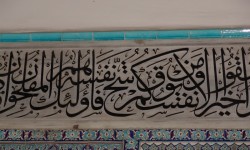 خيرا لأنفسكم ومن يوق شح نفسه فأولئك هم المفلحون